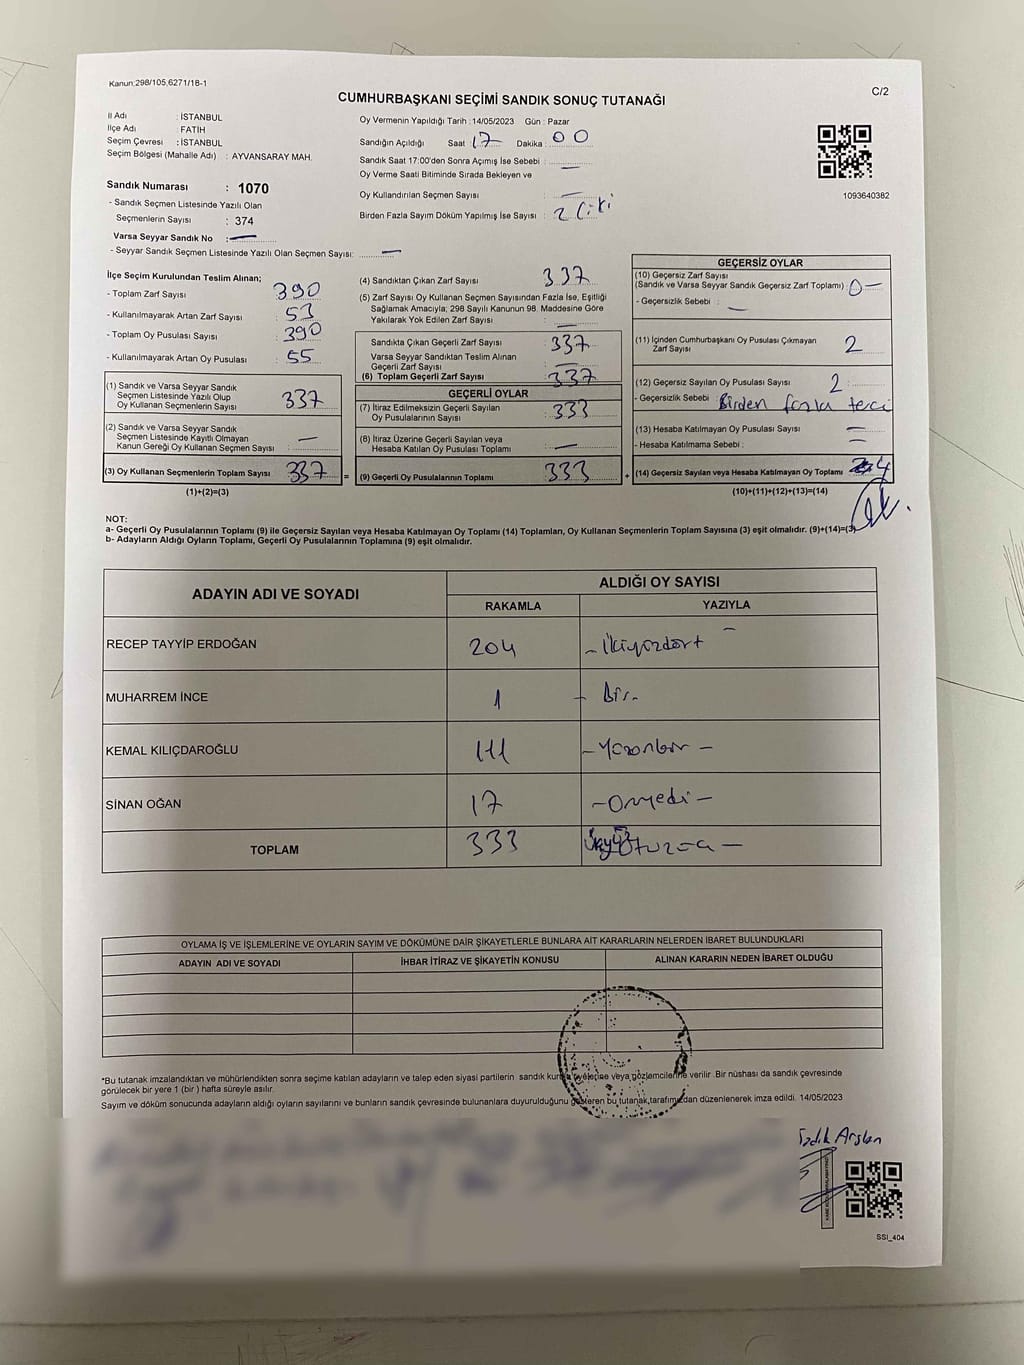 Kanun,298/105,6271/18-1
C/2
CUMHURBAŞKANI SEÇİMİ SANDIK SONUÇ TUTANAĞI
İl Adı : İSTANBUL
İlçe Adı : FATİH
Seçim Çevresi : İSTANBUL
Seçim Bölgesi (Mahalle Adı) : AYVANSARAY MAH.
Sandık Numarası : 1070
- Sandık Seçmen Listesinde Yazılı Olan
Seçmenlerin Sayısı : 374
Varsa Seyyar Sandık No : —
- Seyyar Sandık Seçmen Listesinde Yazılı Olan Seçmen Sayısı: —
Oy Vermenin Yapıldığı Tarih : 14/05/2023 Gün : Pazar
Sandığın Açıldığı Saat 17 Dakika : 00
Sandık Saat 17:00'den Sonra Açımış İse Sebebi : —
Oy Verme Saati Bitiminde Sırada Bekleyen ve
Oy Kullandırılan Seçmen Sayısı : —
Birden Fazla Sayım Döküm Yapılmış İse Sayısı : 2 (iki
1093640382
İlçe Seçim Kurulundan Teslim Alınan;
- Toplam Zarf Sayısı : 390
- Kullanılmayarak Artan Zarf Sayısı : 53
- Toplam Oy Pusulası Sayısı : 390
- Kullanılmayarak Artan Oy Pusulası : 55
(1) Sandık ve Varsa Seyyar Sandık
Seçmen Listesinde Yazılı Olup
Oy Kullanan Seçmenlerin Sayısı : 337
(2) Sandık ve Varsa Seyyar Sandık
Seçmen Listesinde Kayıtlı Olmayan
Kanun Gereği Oy Kullanan Seçmen Sayısı : —
(3) Oy Kullanan Seçmenlerin Toplam Sayısı : 337 =
(1)+(2)=(3)
(4) Sandıktan Çıkan Zarf Sayısı : 337
(5) Zarf Sayısı Oy Kullanan Seçmen Sayısından Fazla İse, Eşitliği
Sağlamak Amacıyla; 298 Sayılı Kanunun 98. Maddesine Göre
Yakılarak Yok Edilen Zarf Sayısı : —
Sandıkta Çıkan Geçerli Zarf Sayısı : 337
Varsa Seyyar Sandıktan Teslim Alınan
Geçerli Zarf Sayısı : —
(6) Toplam Geçerli Zarf Sayısı : 337
GEÇERLİ OYLAR
(7) İtiraz Edilmeksizin Geçerli Sayılan
Oy Pusulalarının Sayısı : 333
(8) İtiraz Üzerine Geçerli Sayılan veya
Hesaba Katılan Oy Pusulası Toplamı : —
(9) Geçerli Oy Pusulalarının Toplamı : 333 +
GEÇERSİZ OYLAR
(10) Geçersiz Zarf Sayısı
(Sandık ve Varsa Seyyar Sandık Geçersiz Zarf Toplamı) : 0 —
- Geçersizlik Sebebi : —
(11) İçinden Cumhurbaşkanı Oy Pusulası Çıkmayan
Zarf Sayısı : 2
(12) Geçersiz Sayılan Oy Pusulası Sayısı : 2
- Geçersizlik Sebebi : Birden fazla terci
(13) Hesaba Katılmayan Oy Pusulası Sayısı : —
- Hesaba Katılmama Sebebi : —
(14) Geçersiz Sayılan veya Hesaba Katılmayan Oy Toplamı : 4
(10)+(11)+(12)+(13)=(14)
NOT:
a- Geçerli Oy Pusulalarının Toplamı (9) ile Geçersiz Sayılan veya Hesaba Katılmayan Oy Toplamı (14) Toplamları, Oy Kullanan Seçmenlerin Toplam Sayısına (3) eşit olmalıdır. (9)+(14)=(3)
b- Adayların Aldığı Oyların Toplamı, Geçerli Oy Pusulalarının Toplamına (9) eşit olmalıdır.
ADAYIN ADI VE SOYADI
ALDIĞI OY SAYISI
RAKAMLA YAZIYLA
RECEP TAYYİP ERDOĞAN 204 - İkiyüzdört -
MUHARREM İNCE 1 - Bir -
KEMAL KILIÇDAROĞLU 111 - Yüzonbir -
SİNAN OĞAN 17 - Onyedi -
TOPLAM 333
OYLAMA İŞ VE İŞLEMLERİNE VE OYLARIN SAYIM VE DÖKÜMÜNE DAİR ŞİKAYETLERLE BUNLARA AİT KARARLARIN NELERDEN İBARET BULUNDUKLARI
ADAYIN ADI VE SOYADI İHBAR İTİRAZ VE ŞİKAYETİN KONUSU ALINAN KARARIN NEDEN İBARET OLDUĞU
*Bu tutanak imzalandıktan ve mühürlendikten sonra seçime katılan adayların ve talep eden siyasi partilerin sandık kurulu üyelerine veya gözlemcilerine verilir. Bir nüshası da sandık çevresinde
görülecek bir yere 1 (bir ) hafta süreyle asılır.
Sayım ve döküm sonucunda adayların aldığı oyların sayılarını ve bunların sandık çevresinde bulunanlara duyurulduğunu gösteren bu tutanak,tarafımızdan düzenlenerek imza edildi. 14/05/2023
Sadık Arslan
SSI_404